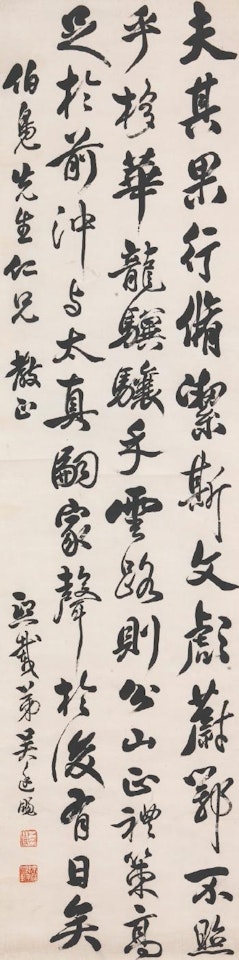 夫其果行脩潔斯文彪蔚鄂不照
乎栘華龍驥驤乎雲路則公山正禮策高
足於前沖与太真嗣家聲於後有日矣
伯先生仁兄教正
熙載弟吳廷颺